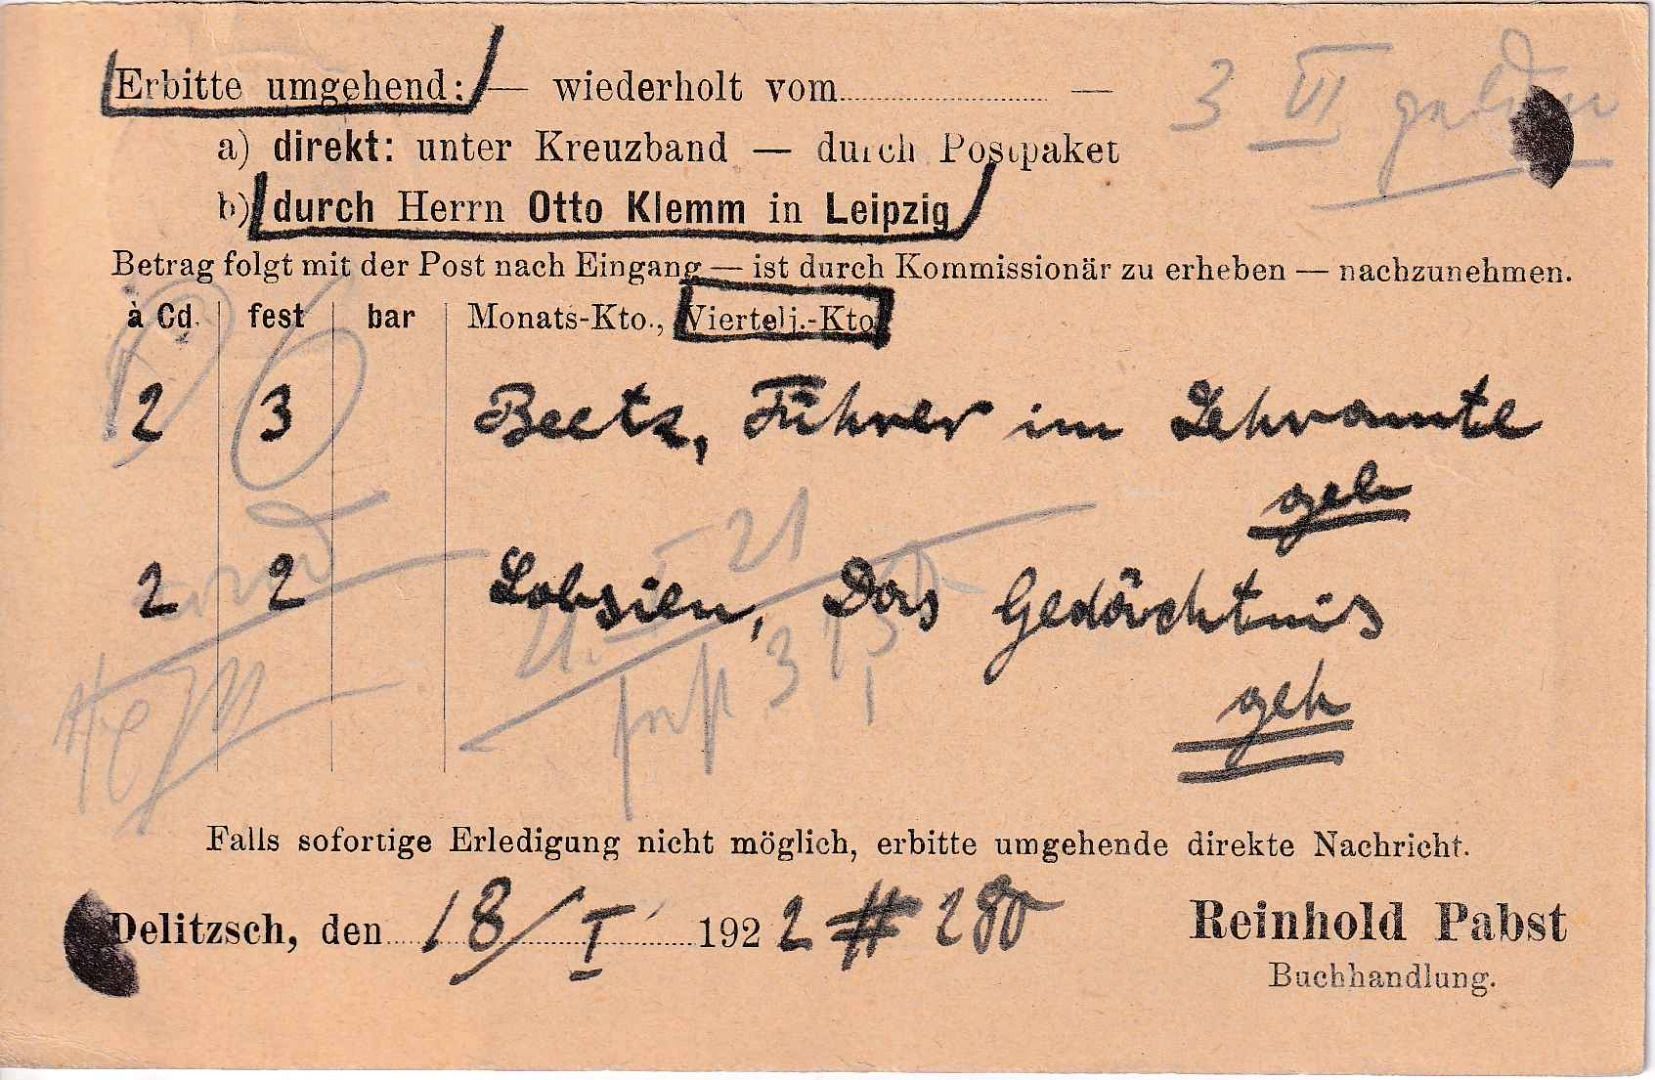 Erbitte umgehend: — wiederholt vom .......... —
3 VI
a) direkt: unter Kreuzband — durch Postpaket
b) durch Herrn Otto Klemm in Leipzig
Betrag folgt mit der Post nach Eingang — ist durch Kommissionär zu erheben — nachzunehmen.
à Cd. fest bar Monats-Kto., Viertelj.-Kto
2 3 Beetz, Führer im Lehramte
geb
21
2 2 Lobsien, Das Gedächtnis
geb
Falls sofortige Erledigung nicht möglich, erbitte umgehende direkte Nachricht.
Delitzsch, den 18/I 1922 # 280
Reinhold Pabst
Buchhandlung.